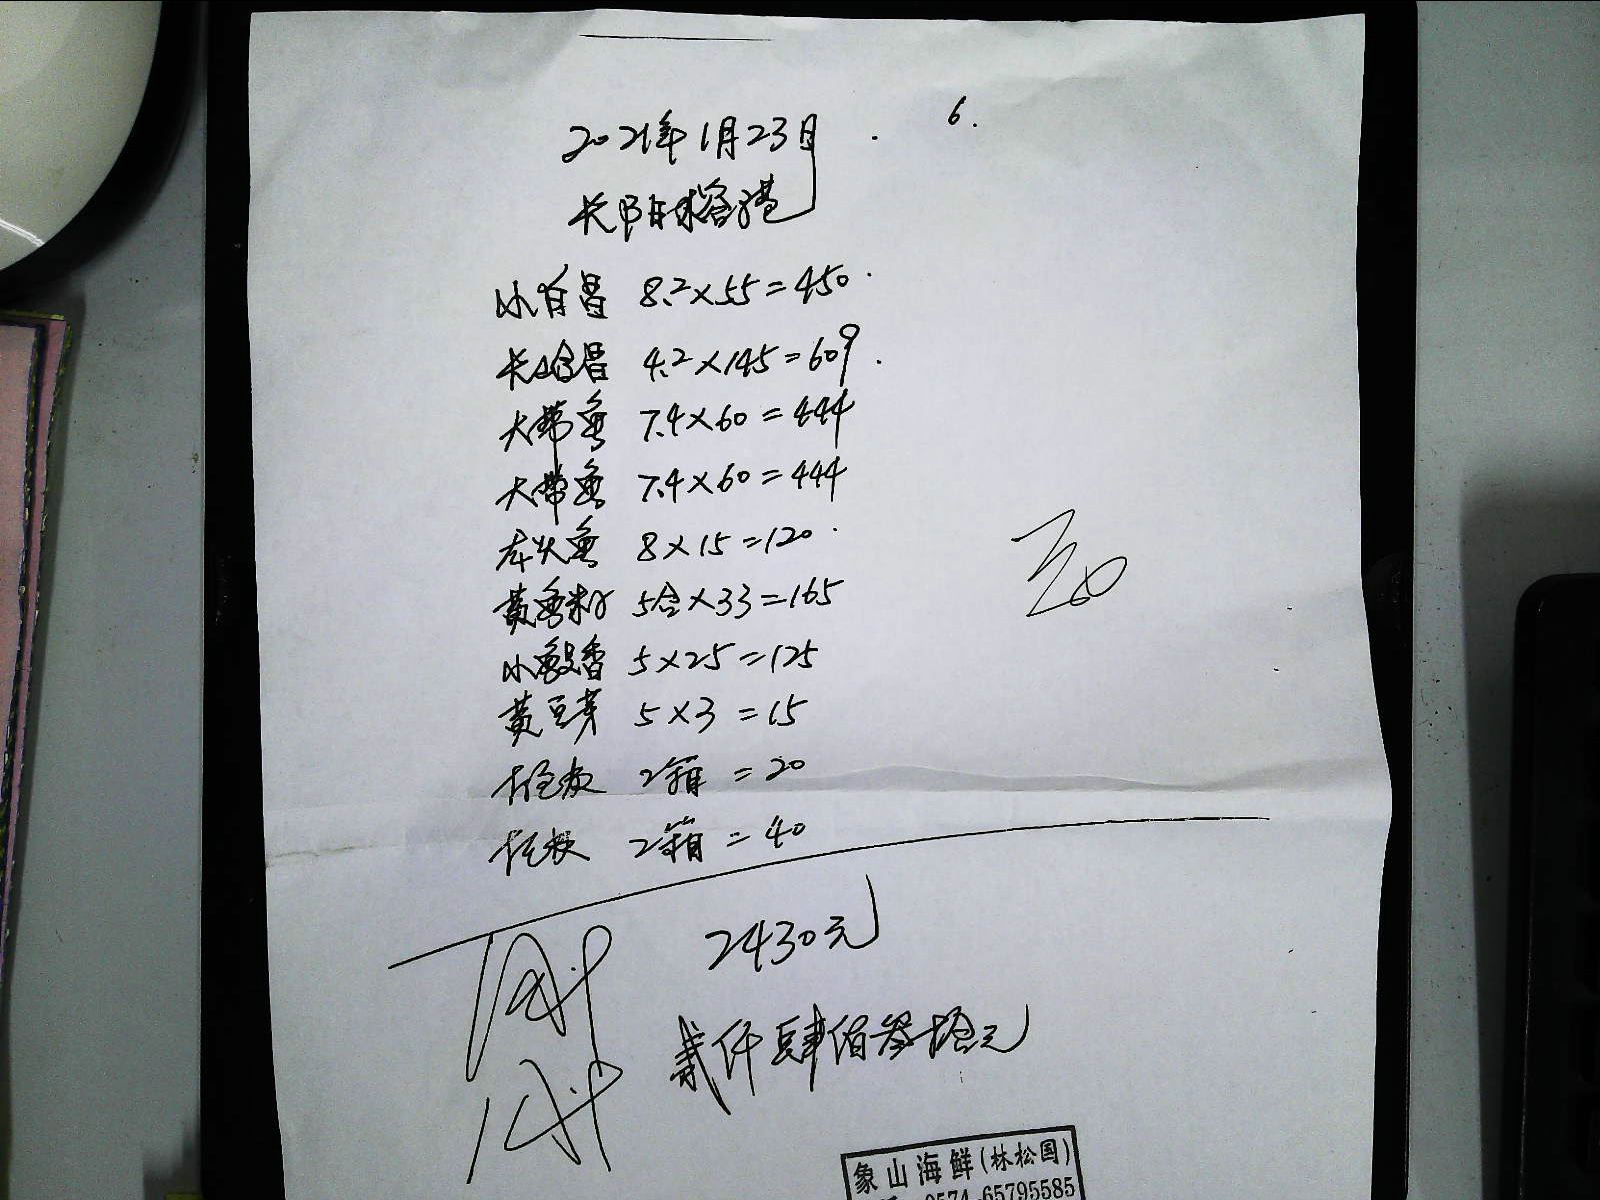 6.
2021年1月23日
长阳林容港
小白昌 8.2×55=450
长山仓昌 4.2×145=609
大带鱼 7.4×60=444
大带鱼 7.4×60=444
本头鱼 8×15=120
黄鱼籽 5合×33=165
小香 5×25=125
黄豆芽 5×3=15
2箱=20
2箱=40
2430元
贰仟肆佰叁拾元
象山海鲜(林松国)
0574-65795585